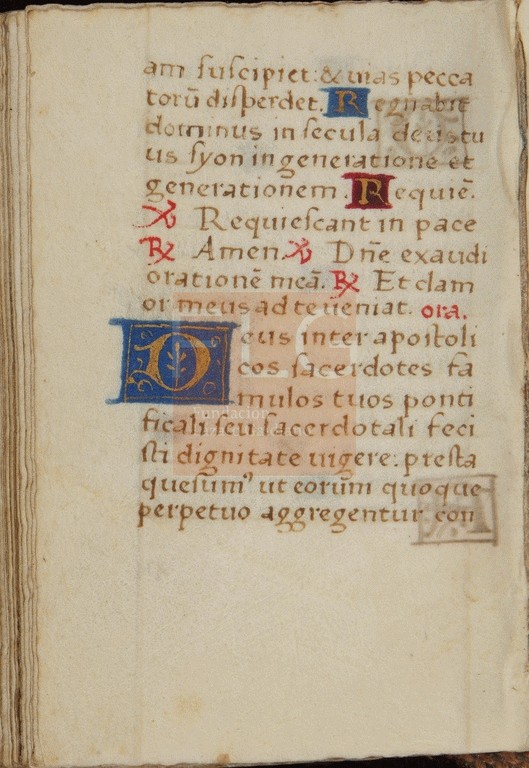 am suscipiet: & uias pecca
torū disperdet. Regnabit
dominus in secula deus tu
us syon in generatione et
generationem. Requiē.
℣ Requiescant in pace
℟ Amen. ℣ Dn̄e exaudi
orationē meā. ℟ Et clam
or meus ad te ueniat. ora.
Deus inter apostoli
cos sacerdotes fa
mulos tuos ponti
ficali seu sacerdotali feci
sti dignitate uigere: presta
quesum⁹ ut eorūm quoque
perpetuo aggregentur con
Fundación